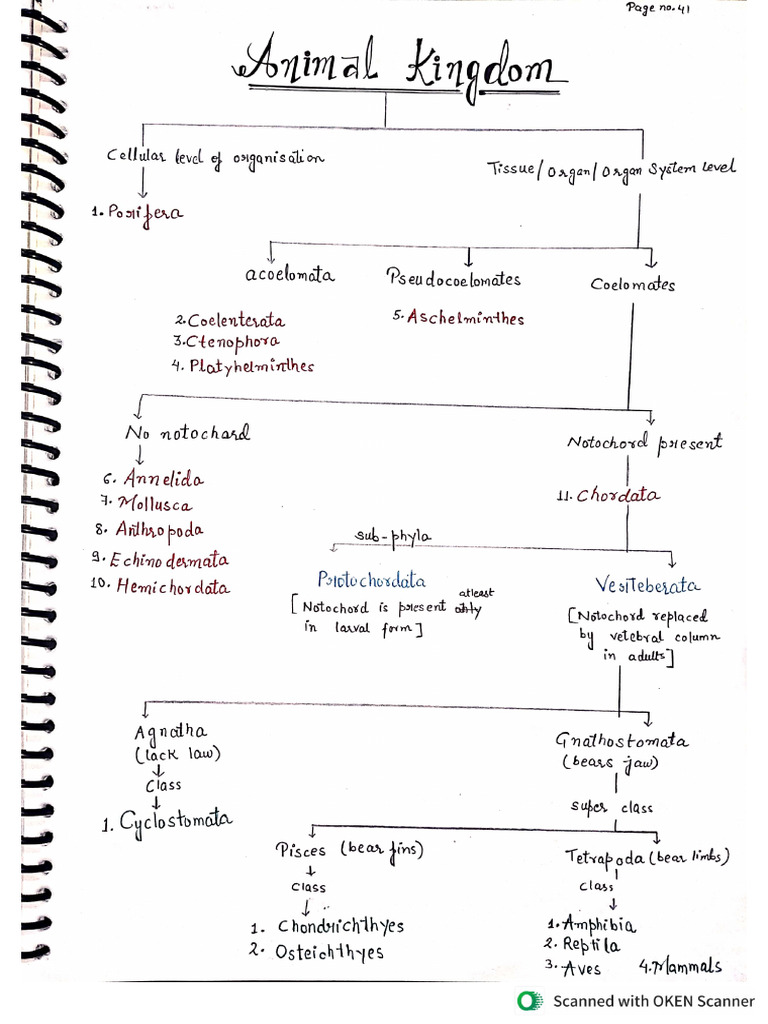 Page no. 41
Animal Kingdom
Cellular level of organisation
Tissue/Organ/Organ System Level
1. Porifera
acoelomata
Pseudocoelomates
Coelomates
2. Coelenterata
3. Ctenophora
4. Platyhelminthes
5. Aschelminthes
No notochard
Notochord present
6. Annelida
7. Mollusca
8. Arthropoda
9. Echinodermata
10. Hemichordata
11. Chordata
sub-phyla
Protochordata
[Notochord is present atleast only
in larval form]
Verteberata
[Notochord replaced
by vetebral column
in adults]
Agnatha
(lack law)
Class
1. Cyclostomata
Gnathostomata
(bears jaw)
super class
Pisces (bear fins)
class
1. Chondrichthyes
2. Osteichthyes
Tetrapoda (bear limbs)
class
1. Amphibia
2. Reptila
3. Aves 4. Mammals
Scanned with OKEN Scanner